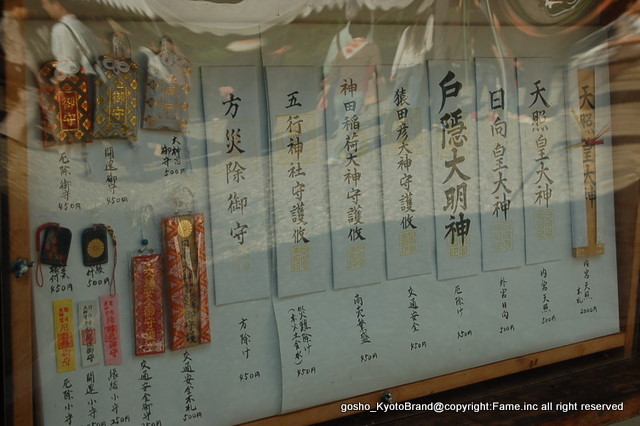 御守
御守
厄除御守
450円
開運御守
450円
大神宮
御守
500円
方災除御守
方除け
450円
五行神社守護攸
450円
神田稲荷大神守護攸
商売繁盛
450円
猿田彦大神守護攸
交通安全
450円
戸隠大明神
厄除け
450円
日向皇大神
外宮日向
500円
天照皇大神
内宮天照
500円
天照皇大神
内宮天照
大札
2000円
450円
500円
交通安全御守
交通安全木札
500円
厄除小守
開運小守
250円
250円
gosho_KyotoBrand@copyright:Fame.inc all right reserved